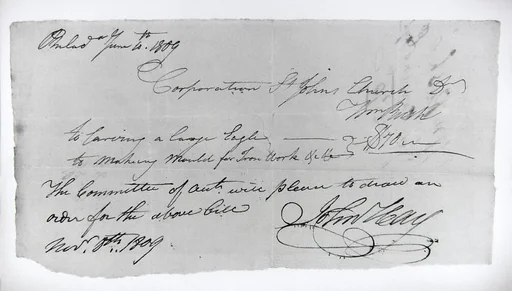 Philad.a June 6th 1809
Corporation St Johns Church Dr
Wm Rush
to Carving a Large Eagle
to Making Mould for Iron Work &c $70
The Committee of will please to draw an
order for the above bill
Novr. 8th. 1809.